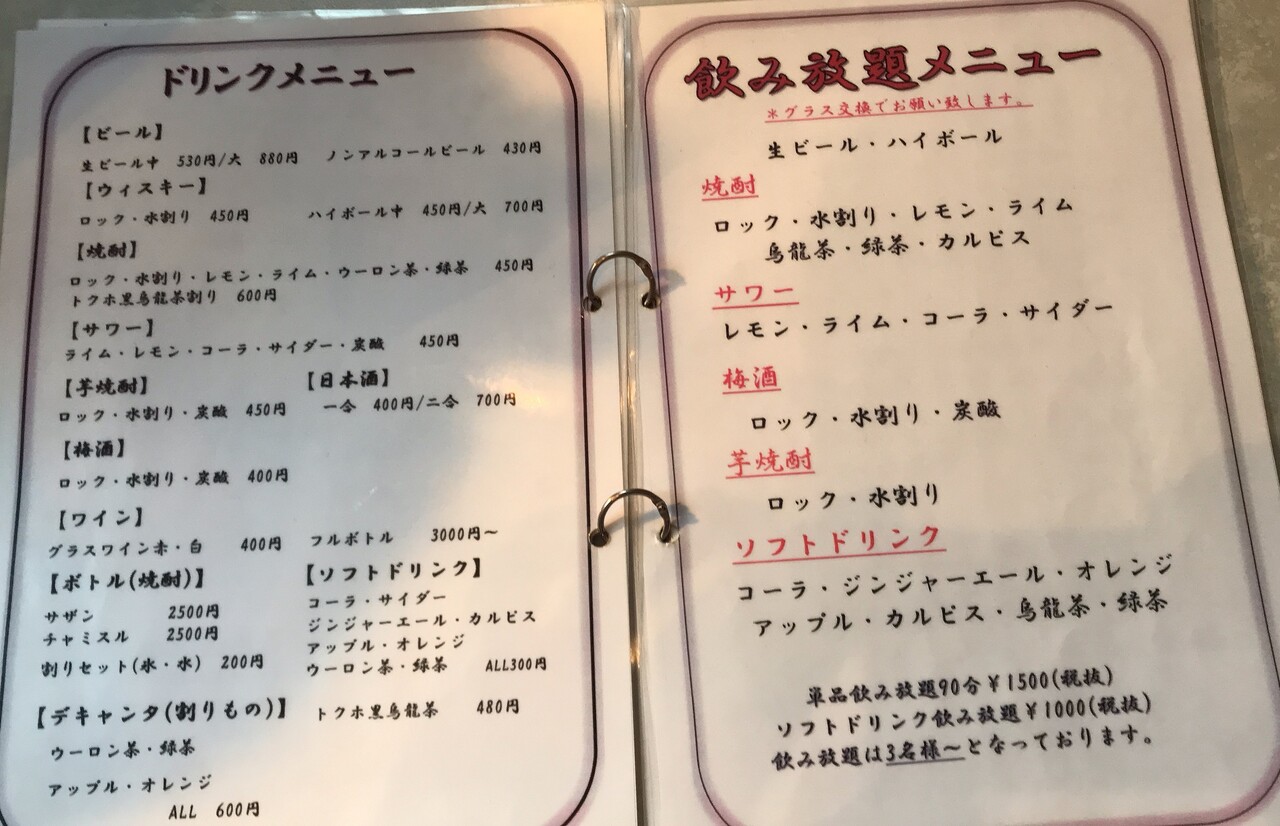 ドリンクメニュー
【ビール】
生ビール中 530円/大 880円 ノンアルコールビール 430円
【ウィスキー】
ロック・水割り 450円 ハイボール中 450円/大 700円
【焼酎】
ロック・水割り・レモン・ライム・ウーロン茶・緑茶 450円
トクホ黒烏龍茶割り 600円
【サワー】
ライム・レモン・コーラ・サイダー・炭酸 450円
【芋焼酎】
ロック・水割り・炭酸 450円
【日本酒】
一合 400円/二合 700円
【梅酒】
ロック・水割り・炭酸 400円
【ワイン】
グラスワイン赤・白 400円 フルボトル 3000円～
【ボトル(焼酎)】
サザン 2500円
チャミスル 2500円
割りセット(氷・水) 200円
【ソフトドリンク】
コーラ・サイダー
ジンジャーエール・カルピス
アップル・オレンジ
ウーロン茶・緑茶 ALL300円
トクホ黒烏龍茶 480円
【デキャンタ(割りもの)】
ウーロン茶・緑茶
アップル・オレンジ
ALL 600円
飲み放題メニュー
＊グラス交換でお願い致します。
生ビール・ハイボール
焼酎
ロック・水割り・レモン・ライム
烏龍茶・緑茶・カルピス
サワー
レモン・ライム・コーラ・サイダー
梅酒
ロック・水割り・炭酸
芋焼酎
ロック・水割り
ソフトドリンク
コーラ・ジンジャーエール・オレンジ
アップル・カルピス・烏龍茶・緑茶
単品飲み放題90分￥1500(税抜)
ソフトドリンク飲み放題￥1000(税抜)
飲み放題は3名様～となっております。